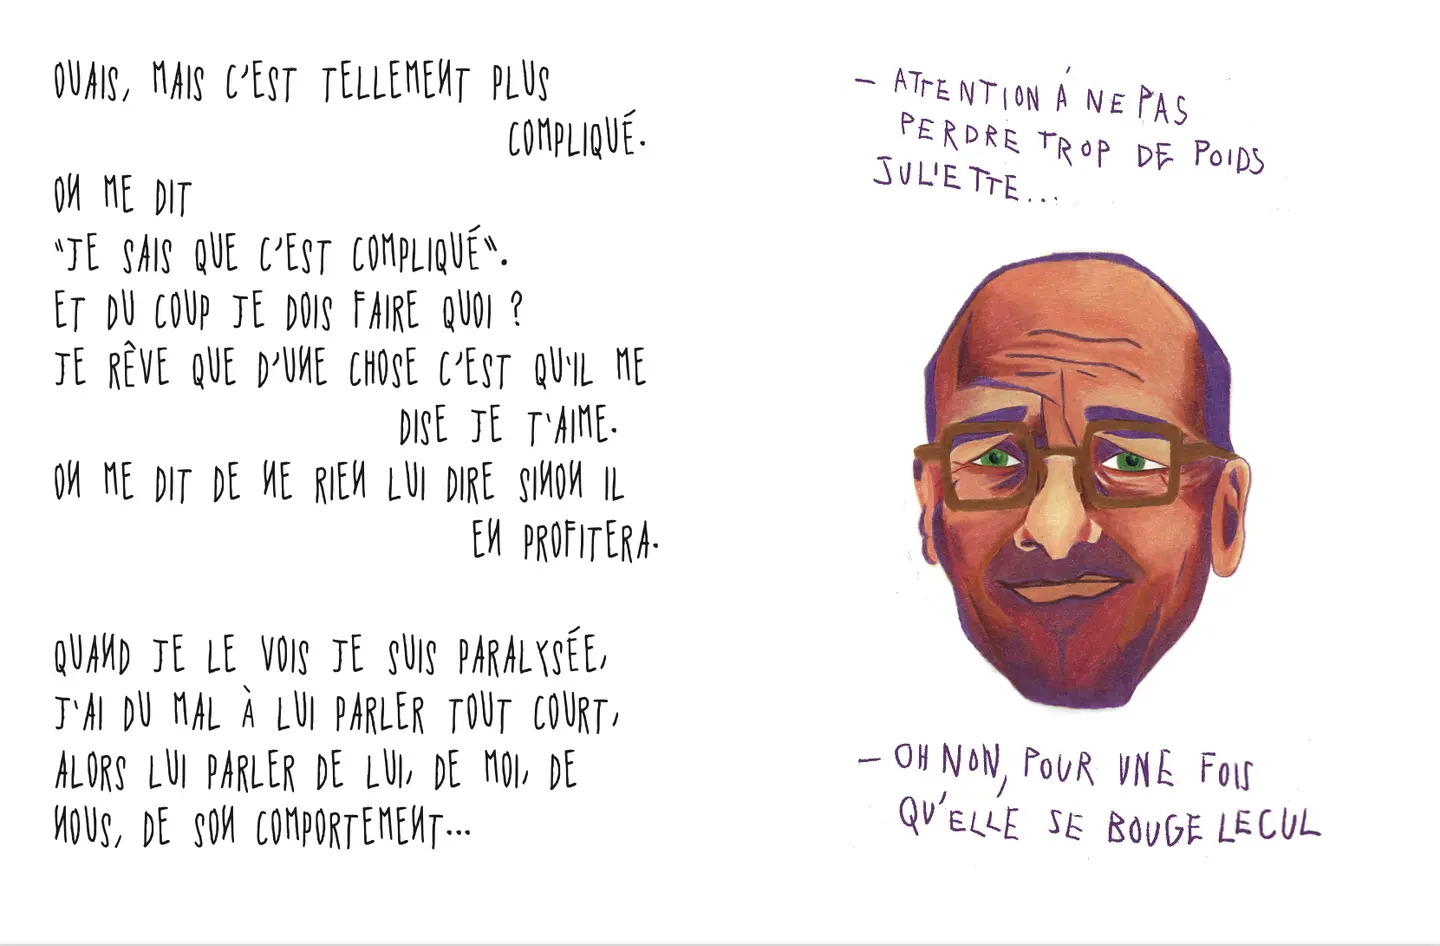 OUAIS, MAIS C'EST TELLEMENT PLUS
COMPLIQUÉ.
ON ME DIT
"JE SAIS QUE C'EST COMPLIQUÉ".
ET DU COUP JE DOIS FAIRE QUOI ?
JE RÊVE QUE D'UNE CHOSE C'EST QU'IL ME
DISE JE T'AIME.
ON ME DIT DE NE RIEN LUI DIRE SINON IL
EN PROFITERA.
QUAND JE LE VOIS JE SUIS PARALYSÉE,
J'AI DU MAL À LUI PARLER TOUT COURT,
ALORS LUI PARLER DE LUI, DE MOI, DE
NOUS, DE SON COMPORTEMENT...
– ATTENTION Á NE PAS
PERDRE TROP DE POIDS
JULIETTE...
– OH NON, POUR UNE FOIS
QU'ELLE SE BOUGE LE CUL